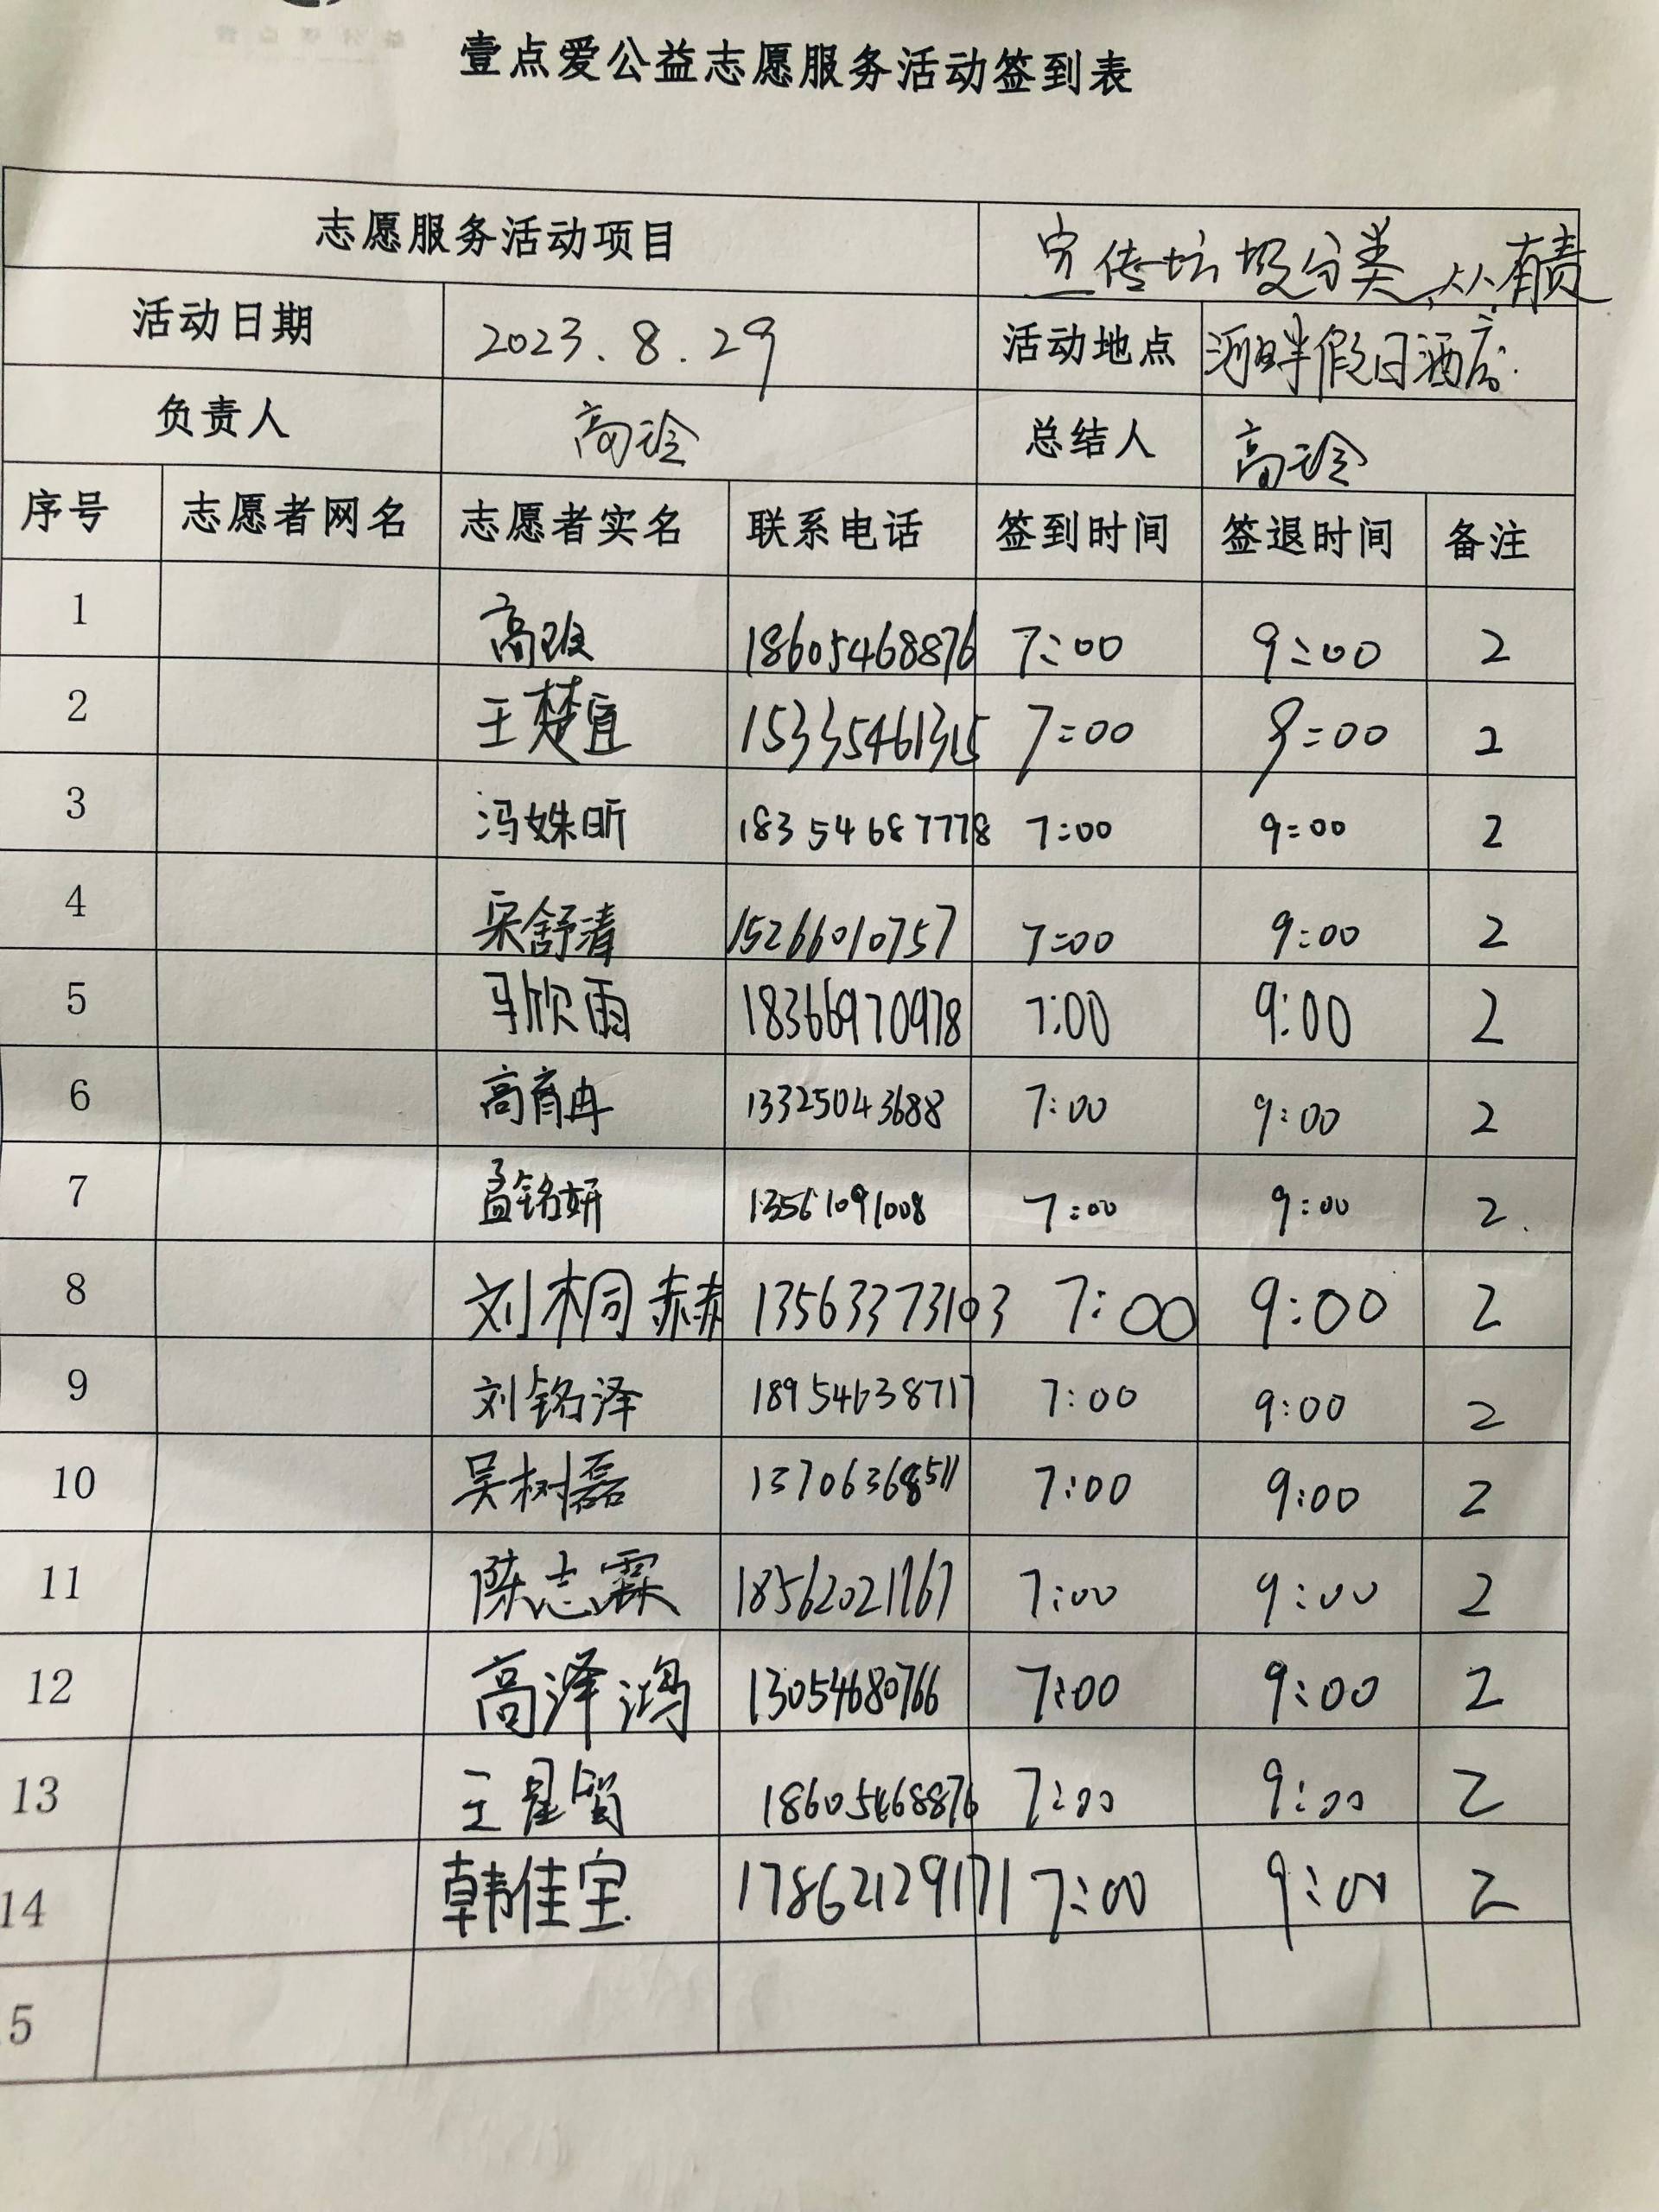 壹点爱公益志愿服务活动签到表
志愿服务活动项目 宣传垃圾分类,人人有责
活动日期 2023.8.29 活动地点 河畔假日酒店.
负责人 高玲 总结人 高玲
序号 志愿者网名 志愿者实名 联系电话 签到时间 签退时间 备注
1 18605468876 7:00 9:00 2
2 王楚宜 15335461315 7:00 9:00 2
3 冯姝昕 18354687778 7:00 9:00 2
4 宋舒清 15266010757 7:00 9:00 2
5 马欣雨 18366970978 7:00 9:00 2
6 高育冉 13325043688 7:00 9:00 2
7 孟铭妍 13561091008 7:00 9:00 2.
8 刘桐赫 13563373103 7:00 9:00 2
9 刘铭泽 18954638717 7:00 9:00 2
10 吴树磊 13706368511 7:00 9:00 2
11 陈志霖 18562021767 7:00 9:00 2
12 高泽鸿 13054680766 7:00 9:00 2
13 18605468876 7:00 9:00 2
14 韩佳宝 17862129171 7:00 9:00 2
5